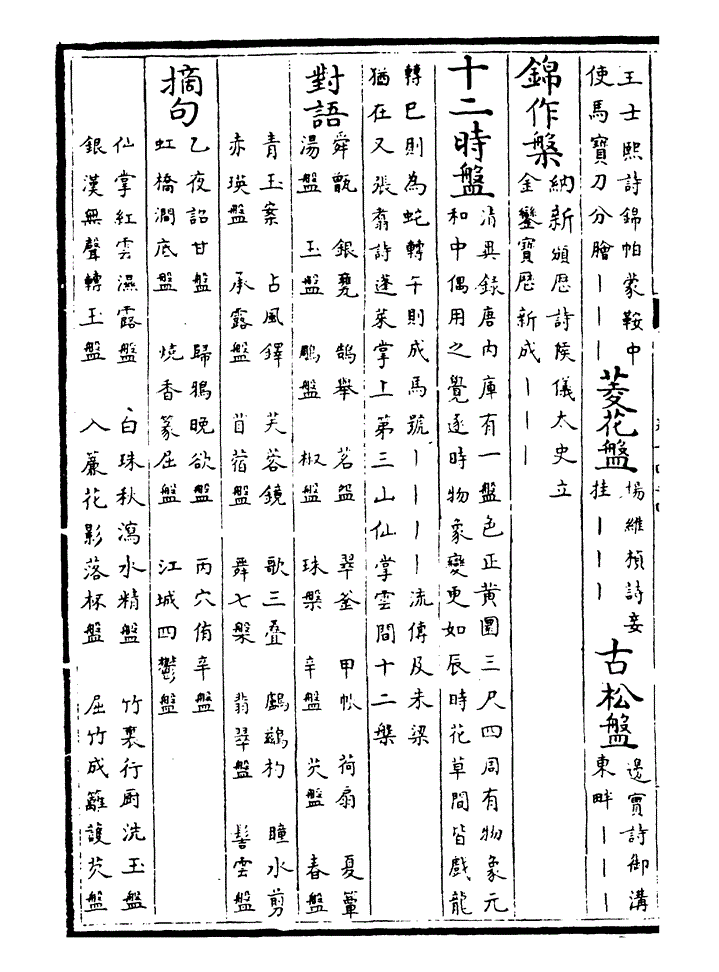 王士熙詩錦帕蒙鞍中
使馬寶刀分膾｜｜｜
菱花盤
楊維楨詩妾
挂｜｜｜
古松盤
邊實詩御溝
東畔｜｜｜
錦作槃
納新頒歷詩侯儀太史立
金鑾寶歷新成｜｜｜
十二時盤
清異錄唐内庫有一盤色正黄圍三尺四周有物象元
和中偶用之覺逐時物象變更如辰時花草間皆戲龍
轉巳則為蛇轉午則成馬號｜｜｜｜流傳及朱梁
猶在又張翥詩蓬萊掌上第三山仙掌雲間十二槃
對語
舜甑 銀甕 鵠舉 茗盌 翠釜 甲帳 荷扇 夏簟
湯盤 玉盤 鵰盤 椒盤 珠槃 辛盤 芡盤 春盤
青玉案 占風鐸 芙蓉鏡 歌三叠 鸕鷀杓 瞳水剪
赤瑛盤 承露盤 苜蓿盤 舞七槃 翡翠盤 髻雲盤
摘句
乙夜詔甘盤 歸鴉晚欲盤 丙穴侑辛盤
虹橋澗底盤 燒香篆屈盤 江城四鬱盤
仙掌紅雲濕露盤 白珠秋瀉水精盤 竹裏行厨洗玉盤
銀漢無聲轉玉盤 入簾花影落杯盤 屈竹成籬護芡盤